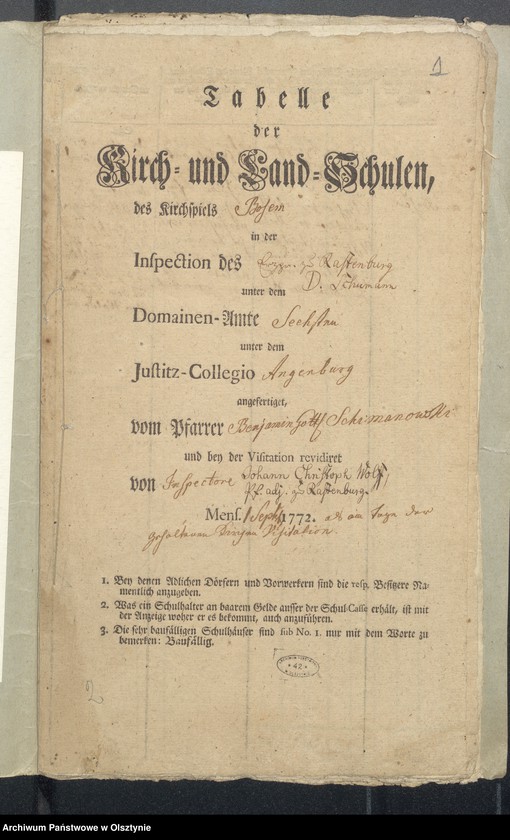 1
Tabelle
der
Kirch- und Land-Schulen,
des Kirchspiels Bosem
in der
Inspection des zu Rastenburg
D. Schumann
unter dem
Domainen-Amte Seehsten
unter dem
Justitz-Collegio Angerburg
angefertiget,
vom Pfarrer Benjamin Gottf Schimanowski
und bey der Visitation revidiret
von Inspectore Johann Christoph Wolf,
Pf. adj. zu Rastenburg.
Mens. Sept. 1772. als am Tage der
gehaltenen Kirchen Visitation.
1. Bey denen Adlichen Dörfern und Vorwerkern sind die resp. Besitzere Na-
mentlich anzugeben.
2. Was ein Schulhalter an baarem Gelde ausser der Schul-Casse erhält, ist mit
der Anzeige woher er es bekommt, auch anzuführen.
3. Die sehr baufälligen Schulhäuser sind sub No. 1. nur mit dem Worte zu
bemerken: Baufällig.
42
2
Archiwum Państwowe w Olsztynie